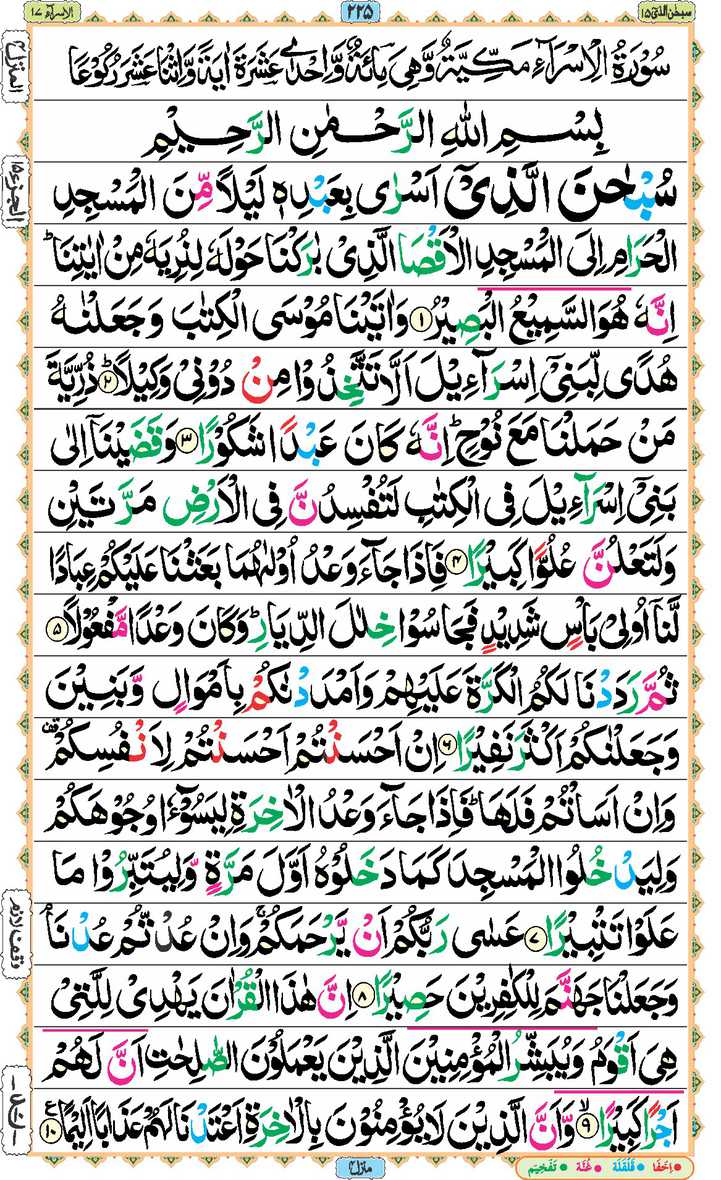 سبحٰن الذیٓ ۱۵
۲۲۵
الاسرآء ۱۷
سُوۡرَةُ الۡاِسۡرَآءِ مَكِّيَّةٌ وَّهِىَ مِائَةٌ وَّاِحۡدٰى عَشَرَةَ اٰيَةً وَّاثۡنَا عَشَرَ رُكُوۡعًا
بِسۡمِ اللهِ الرَّحۡمٰنِ الرَّحِيۡمِ
سُبۡحٰنَ الَّذِىۡۤ اَسۡرٰى بِعَبۡدِهٖ لَيۡلًا مِّنَ الۡمَسۡجِدِ
الۡحَـرَامِ اِلَى الۡمَسۡجِدِ الۡاَقۡصَا الَّذِىۡ بٰرَكۡنَا حَوۡلَهٗ لِنُرِيَهٗ مِنۡ اٰيٰتِنَا​ ؕ
اِنَّهٗ هُوَ السَّمِيۡعُ الۡبَصِيۡرُ ۱ وَاٰتَيۡنَا مُوۡسَى الۡـكِتٰبَ وَ جَعَلۡنٰهُ
هُدًى لِّبَنِىۡۤ اِسۡرَآءِيۡلَ اَلَّا تَتَّخِذُوۡا مِنۡ دُوۡنِىۡ وَكِيۡلًا ؕ‏ ۲ ذُرِّيَّةَ
مَنۡ حَمَلۡنَا مَعَ نُوۡحٍ​ؕ اِنَّهٗ كَانَ عَبۡدًا شَكُوۡرًا ۳ وَقَضَيۡنَاۤ اِلٰى
بَنِىۡۤ اِسۡرَآءِيۡلَ فِى الۡكِتٰبِ لَـتُفۡسِدُنَّ فِى الۡاَرۡضِ مَرَّتَيۡنِ
وَلَتَعۡلُنَّ عُلُوًّا كَبِيۡرًا ۴ فَاِذَا جَآءَ وَعۡدُ اُوۡلٰٮهُمَا بَعَثۡنَا عَلَيۡكُمۡ عِبَادًا
لَّنَاۤ اُولِىۡ بَاۡسٍ شَدِيۡدٍ فَجَاسُوۡا خِلٰلَ الدِّيَارِ ​ؕ وَكَانَ وَعۡدًا مَّفۡعُوۡلًا ۵
ثُمَّ رَدَدۡنَا لَـكُمُ الۡكَرَّةَ عَلَيۡهِمۡ وَاَمۡدَدۡنٰـكُمۡ بِاَمۡوَالٍ وَّبَنِيۡنَ
وَجَعَلۡنٰكُمۡ اَكۡثَرَ نَفِيۡرًا ۶ اِنۡ اَحۡسَنۡتُمۡ اَحۡسَنۡتُمۡ لِاَنۡفُسِكُمۡ
وَاِنۡ اَسَاۡتُمۡ فَلَهَا ​ؕ فَاِذَا جَآءَ وَعۡدُ الۡاٰخِرَةِ لِيَسُوۡۤءٗا وُجُوۡهَكُمۡ
وَلِيَدۡخُلُوا الۡمَسۡجِدَ كَمَا دَخَلُوۡهُ اَوَّلَ مَرَّةٍ وَّلِيُتَبِّرُوۡا مَا
عَلَوۡا تَتۡبِيۡرًا ۷ عَسٰى رَبُّكُمۡ اَنۡ يَّرۡحَمَكُمۡ​ ۚ وَاِنۡ عُدْتُّمۡ عُدۡنَا​ ۘ
وَجَعَلۡنَا جَهَنَّمَ لِلۡكٰفِرِيۡنَ حَصِيۡرًا ۸ اِنَّ هٰذَا الۡقُرۡاٰنَ يَهۡدِىۡ لِلَّتِىۡ
هِىَ اَقۡوَمُ وَ يُبَشِّرُ الۡمُؤۡمِنِيۡنَ الَّذِيۡنَ يَعۡمَلُوۡنَ الصّٰلِحٰتِ اَنَّ لَهُمۡ
اَجۡرًا كَبِيۡرًا ۙ‏ ۹ وَّاَنَّ الَّذِيۡنَ لَا يُؤۡمِنُوۡنَ بِالۡاٰخِرَةِ اَعۡتَدۡنَا لَهُمۡ عَذَابًا اَلِيۡمًا ۱۰ ع
المنزل ۴
الجزء ۱۵
وقف لازم
منزل ۴
اِخفَا • قَلقَلَه • غُنَّه • تَفخِیم •